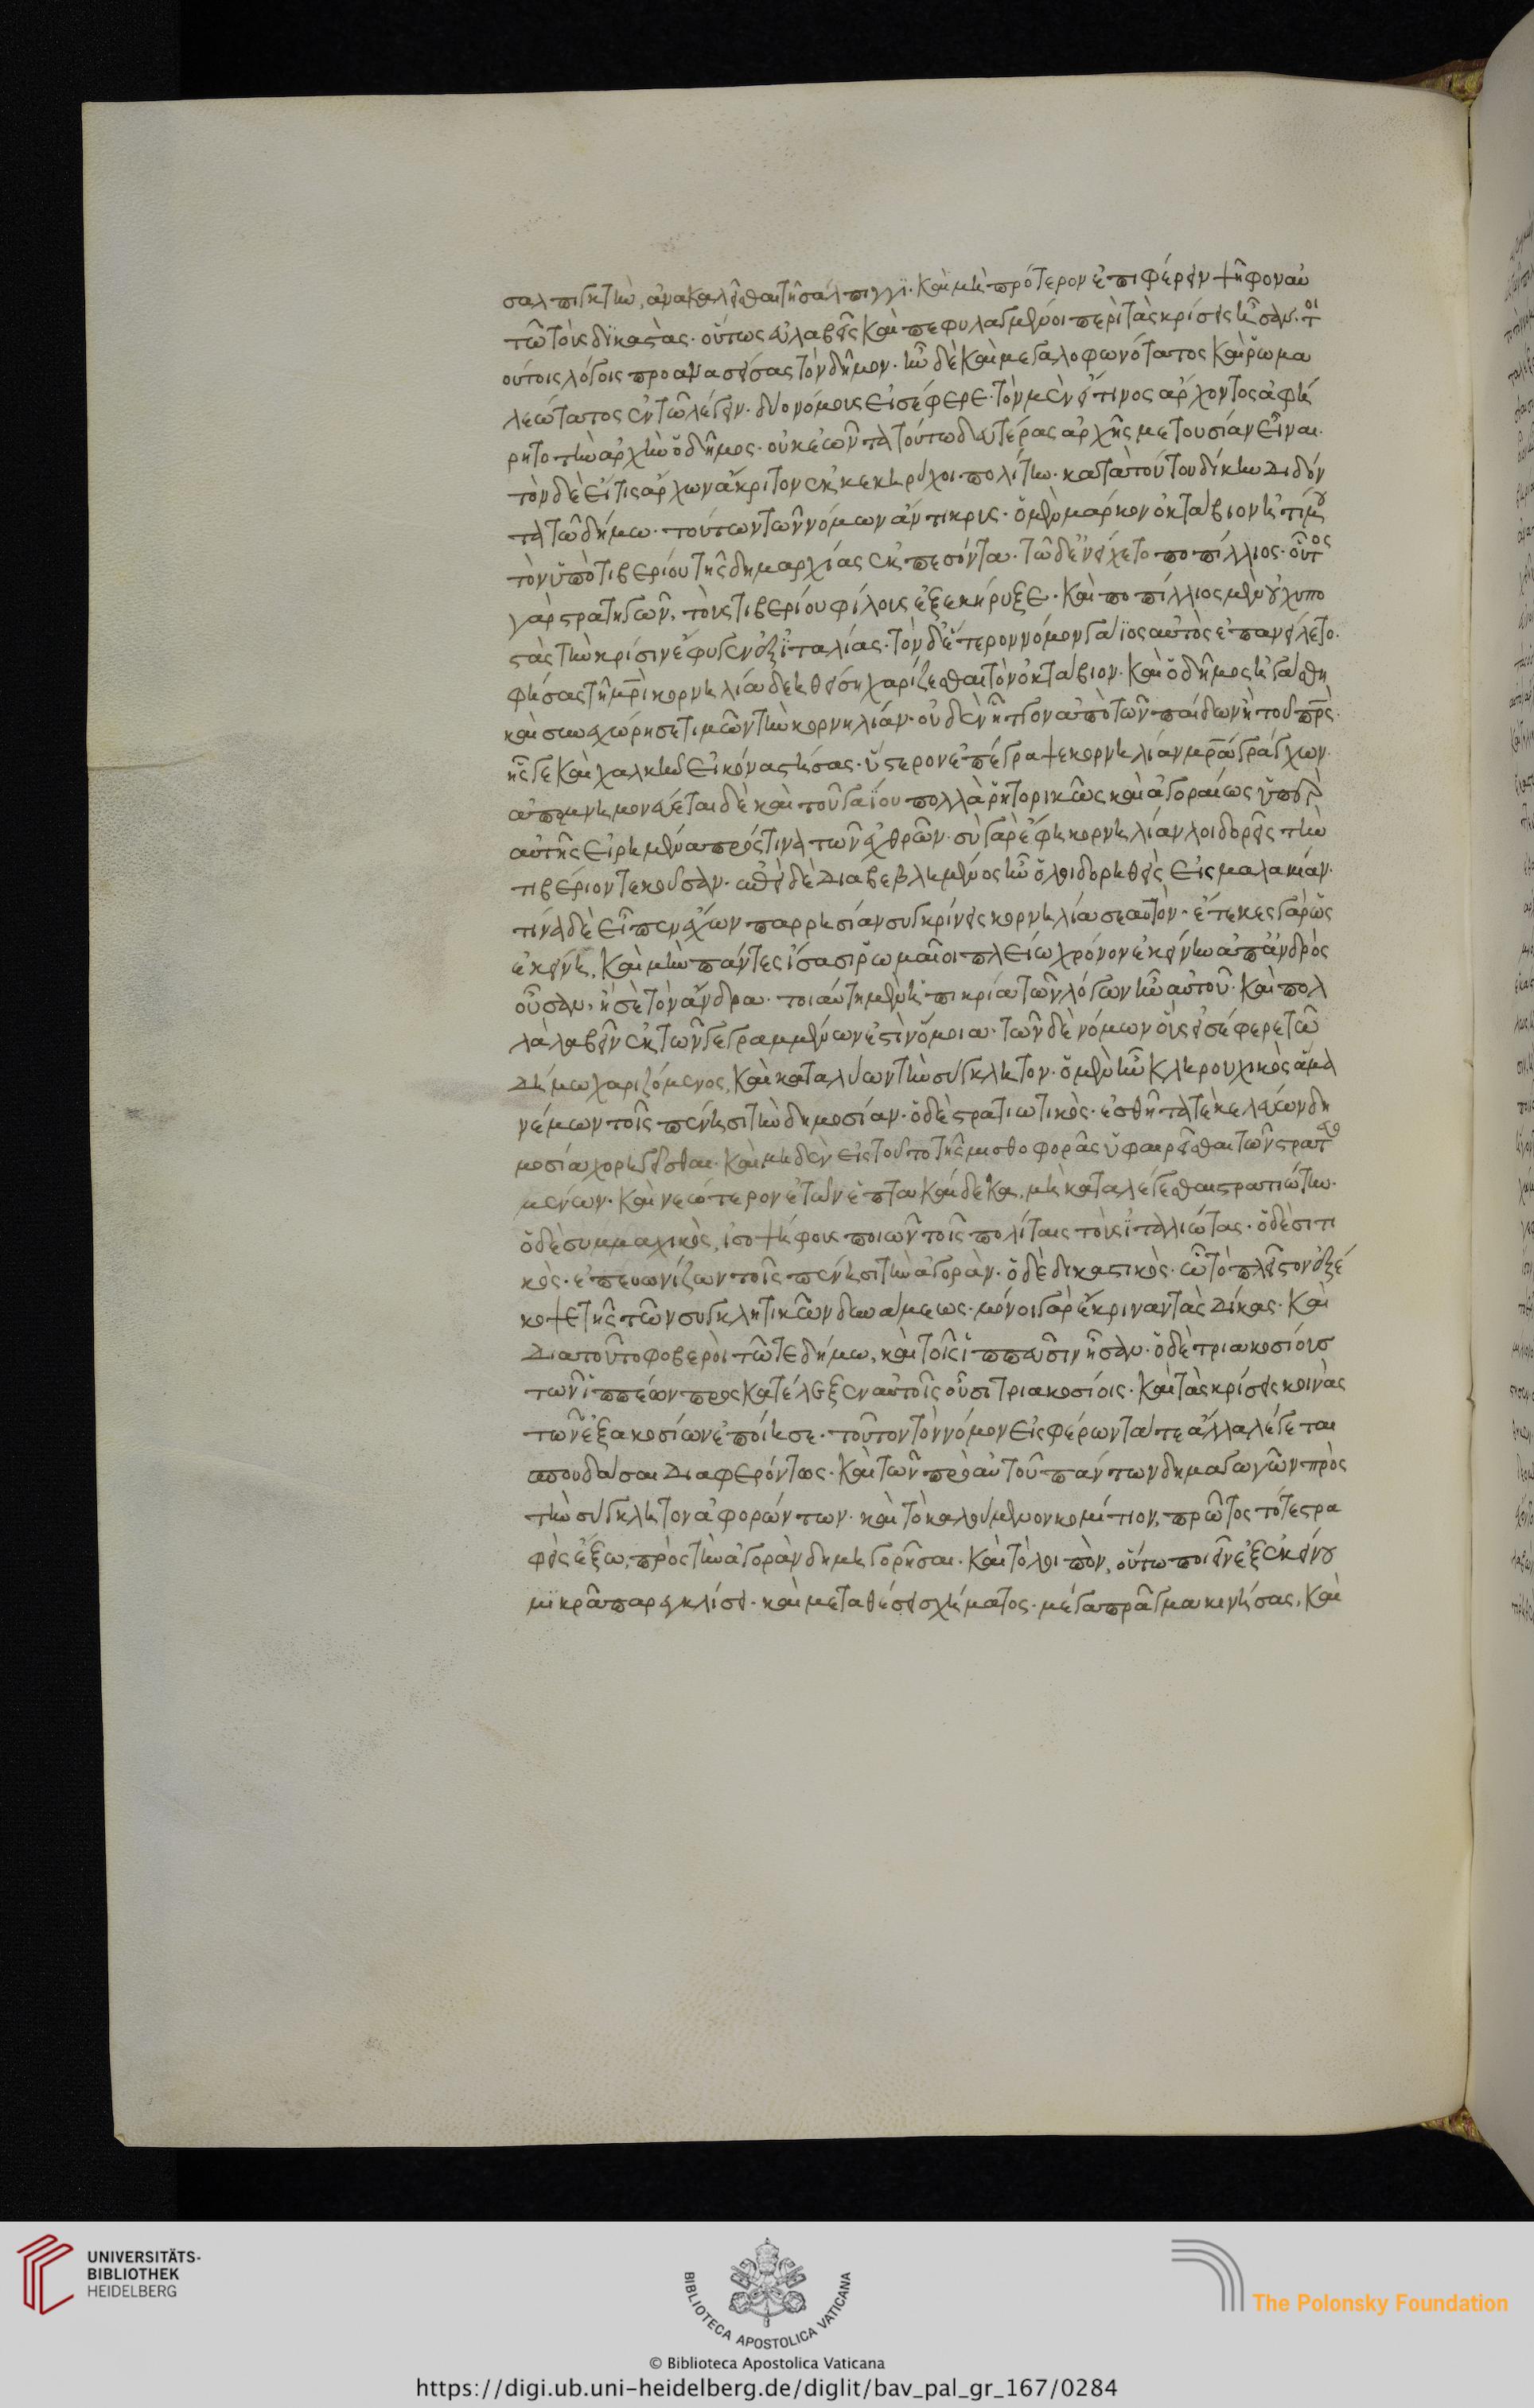 σαλπιγκτὴν, ἀνακαλεῖσθαι τῆ σάλπιγγι. καὶ μὴ πρότερον ἐπιφέρειν ψῆφον αὐ
τῶ τοὺς δικαστάς. οὕτως εὐλαβεῖς καὶ πεφυλαγμένοι περὶ τὰς κρίσεις ἦσαν. τοι
ούτοις λόγοις προανασείσας τὸν δῆμον. ἦν δὲ καὶ μεγαλοφωνότατος καὶ ῥωμα
λεώτατος ἐν τῶ λέγειν. δύο νόμους εἰσέφερε. τὸν μὲν εἴ τινος ἄρχοντος ἀφή
ρητο τὴν ἀρχὴν ὁ δῆμος. οὐκ ἐῶντα τούτω δευτέρας ἀρχῆς μετουσίαν εἶναι.
τὸν δὲ εἴ τις ἄρχων ἄκριτον ἐκκεκηρύχοι πολίτην. κατὰ τούτου δίκην διδόν
τα τῶ δήμω. τούτων τῶν νόμων ἄντικρυς. ὁ μὲν μάρκον ὀκτάβιον ἠτίμου
τὸν ὑπὸ τιβερίου τῆς δημαρχίας ἐκπεσόντα. τῶ δ' ἐνείχετο ποπίλλιος. οὗτος
γὰρ στρατηγῶν, τοὺς τιβερίου φίλους ἐξεκήρυξε. καὶ ποπίλλιος μὲν οὐχ ὑπο
στὰς τὴν κρίσιν ἔφυγεν ἐξ ἰταλίας. τὸν δ' ἕτερον νόμον γάϊος αὐτὸς ἐπανείλετο.
φήσας τῆ μρὶ κορνηλία δεηθείση χαρίζεσθαι τὸν ὀκτάβιον. καὶ ὁ δῆμος ἠγάσθη
καὶ συνεχώρησε τιμῶν τὴν κορνηλίαν. οὐδὲν ἧττον ἀπὸ τῶν παίδων ἢ τοῦ πρς.
ἧς γε καὶ χαλκῆν εἰκόνα στήσας. ὕστερον ἐπέγραψε κορνηλίαν μρα γράγχων.
ἀπομνημονεύεται δὲ καὶ τοῦ γαΐου πολλὰ ῥητορικῶς καὶ ἀγοραίως ὑπὲρ
αὐτῆς εἰρημένα πρός τινα τῶν ἐχθρῶν. σὺ γὰρ ἔφη κορνηλίαν λοιδορεῖς τὴν
τιβέριον τεκοῦσαν. ἐπεὶ δὲ διαβεβλημένος ἦν ὁ λοιδορηθεὶς εἰς μαλακίαν.
τίνα δὲ εἶπεν ἔχων παρρησίαν συγκρίνεις κορνηλία σεαυτόν. ἔτεκες γὰρ ὡς
ἐκείνη, καὶ μὴν πάντες ἴσασι ῥωμαῖοι πλείω χρόνον ἐκείνην ἀπ' ἀνδρὸς
οὖσαν, ἢ σὲ τὸν ἄνδρα. τοιαύτη μὲν ἡ πικρία τῶν λόγων ἦν αὐτοῦ. καὶ πολ
λὰ λαβεῖν ἐκ τῶν γεγραμμένων ἐστὶν ὅμοια. τῶν δὲ νόμων οὓς εἰσέφερε τῶ
δήμω χαριζόμενος, καὶ καταλύων τὴν σύγκλητον. ὁ μὲν ἦν κληρουχικὸς ἅμα
νέμων τοῖς πένησι τὴν δημοσίαν. ὁ δὲ στρατιωτικὸς. ἐσθῆτά τε κελεύων δη
μοσία χορηγεῖσθαι. καὶ μηδὲν εἰς τοῦτο τῆς μισθοφορᾶς ὑφαιρεῖσθαι τῶν στρατευο
μένων. καὶ νεώτερον ἐτῶν ἑπτακαίδεκα, μὴ καταλέγεσθαι στρατιώτην.
ὁ δὲ συμμαχικὸς, ἰσοψήφους ποιῶν τοῖς πολίταις τοὺς ἰταλιώτας. ὁ δὲ σιτι
κὸς. ἐπευωνίζων τοῖς πένησι τὴν ἀγοράν. ὁ δὲ δικαστικὸς. ὧ τὸ πλεῖστον ἐξέ
κοψε τῆς τῶν συγκλητικῶν δυνάμεως. μόνοι γὰρ ἔκριναν τὰς δίκας. καὶ
διὰ τοῦτο φοβεροὶ τῶ τε δήμω, καὶ τοῖς ἱππεῦσιν ἦσαν. ὁ δὲ τριακοσίους
τῶν ἱππέων προσκατέλεξεν αὐτοῖς οὖσι τριακοσίοις. καὶ τὰς κρίσεις κοινὰς
τῶν ἑξακοσίων ἐποίησε. τοῦτον τὸν νόμον εἰσφέρων τά τε ἄλλα λέγεται
σπουδάσαι διαφερόντως. καὶ τῶν πρὸ αὐτοῦ πάντων δημαγωγῶν πρὸς
τὴν σύγκλητον ἀφορώντων. καὶ τὸ καλούμενον κομίτιον, πρῶτος τότε στρα
φεὶς ἔξω, πρὸς τὴν ἀγορὰν δημηγορῆσαι. καὶ τὸ λοιπὸν, οὕτω ποιεῖν ἐξ ἐκείνου
μικρᾶ παρεγκλίσει. καὶ μεταθέσει σχήματος. μέγα πρᾶγμα κινήσας, καὶ
UNIVERSITÄTS-
BIBLIOTHEK
HEIDELBERG
BIBLIOTECA APOSTOLICA VATICANA
The Polonsky Foundation
© Biblioteca Apostolica Vaticana
https://digi.ub.uni-heidelberg.de/diglit/bav_pal_gr_167/0284